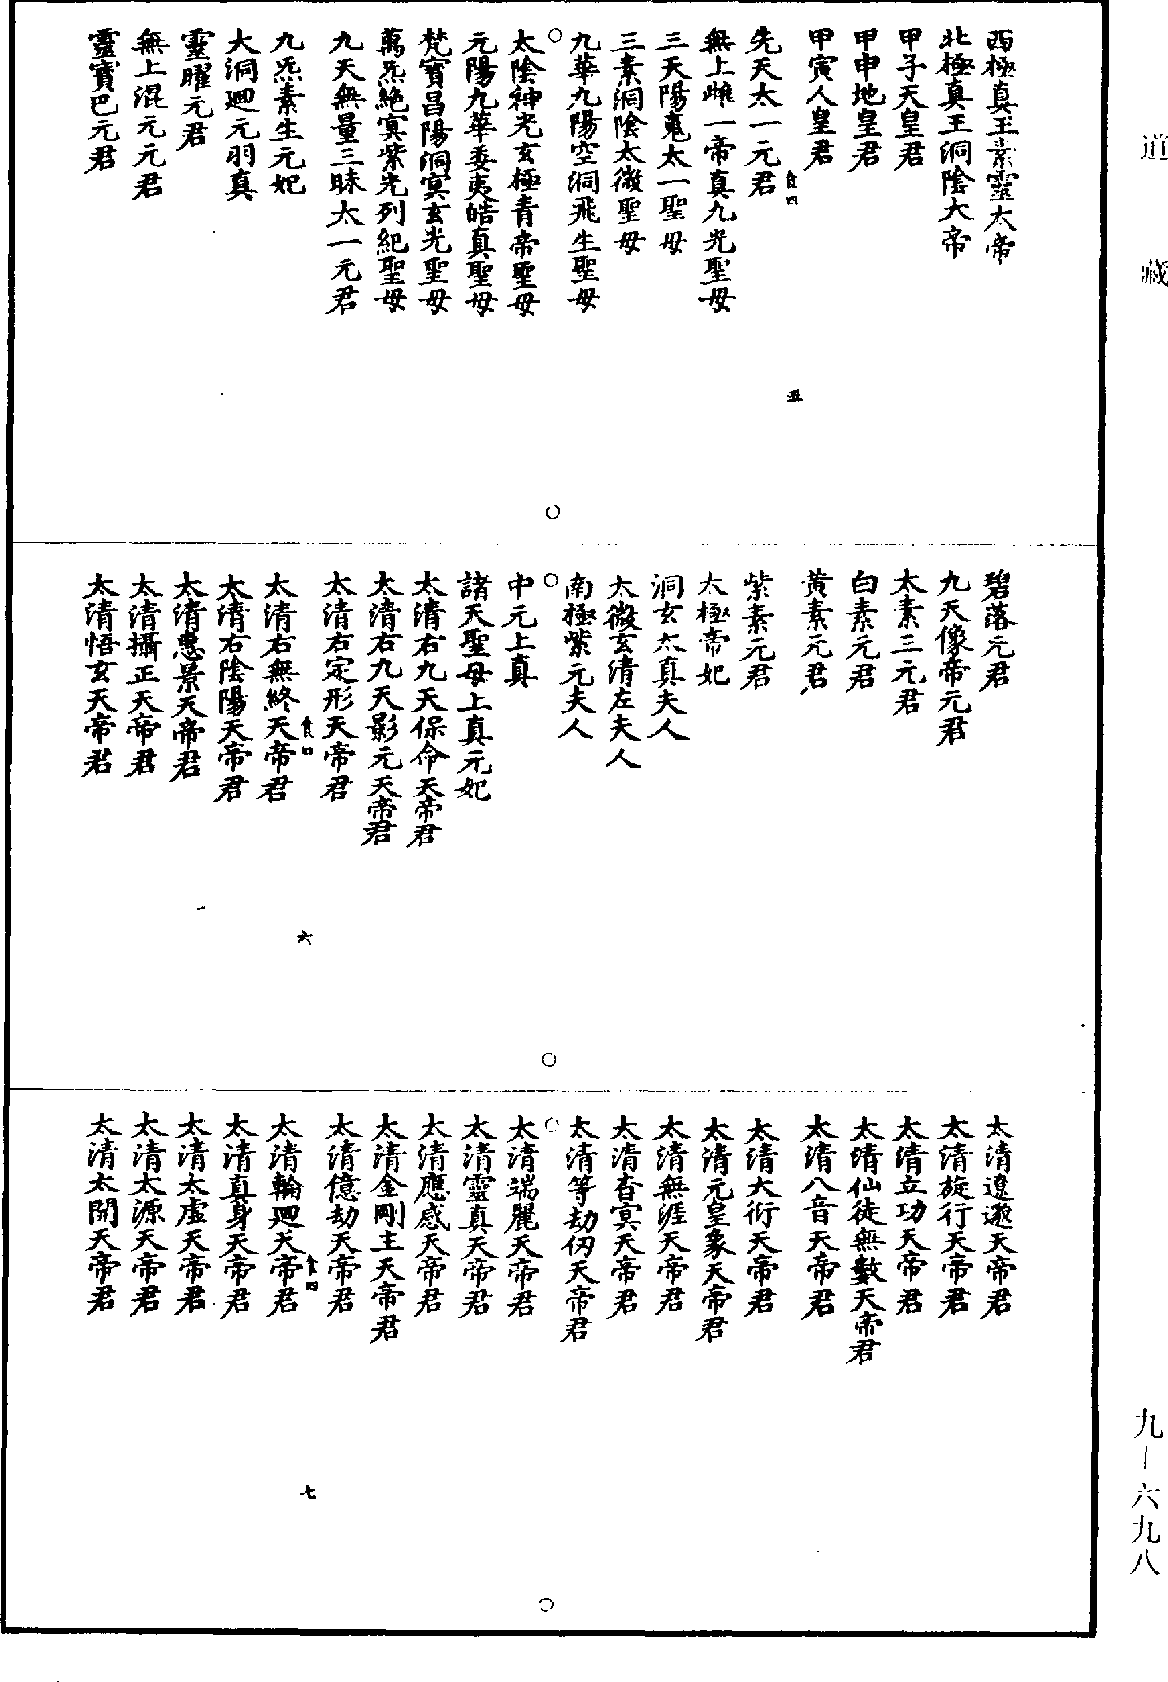 道藏
西極真王素靈太帝
北極真王洞陰大帝
甲子天皇君
甲申地皇君
甲寅人皇君
食四
五
先天太一元君
無上雌一帝真九光聖母
三天陽蒐太一聖母
三素洞陰太微聖母
九華九陽空洞飛生聖母
太陰神光玄極青帝聖母
元陽九華委夷皓真聖母
梵寶昌陽洞冥玄光聖母
萬炁絶冥紫光列紀聖母
九天無量三昧太一元君
九炁素生元妃
大洞廻元羽真
靈曜元君
無上混元元君
靈寶巴元君
碧落元君
九天像帝元君
太素三元君
白素元君
黃素元君
紫素元君
太極帝妃
洞玄太真夫人
太微玄清左夫人
南極紫元夫人
中元上真
諸天聖母上真元妃
太清右九天保命天帝君
太清右九天影元天帝君
太清右定形天帝君
食四
六
太清右無終天帝君
太清右陰陽天帝君
太清慧景天帝君
太清攝正天帝君
太清悟玄天帝君
太清遼邈天帝君
太清旋行天帝君
太清立功天帝君
太清仙徒無數天帝君
太清八音天帝君
太清大術天帝君
太清元皇象天帝君
太清無涯天帝君
太清杳冥天帝君
太清等劫仞天帝君
太清端麗天帝君
太清靈真天帝君
太清應感天帝君
太清金剛主天帝君
太清億劫天帝君
食四
七
太清輪廻天帝君
太清真身天帝君
太清太虛天帝君
太清太源天帝君
太清太開天帝君
九—六九八